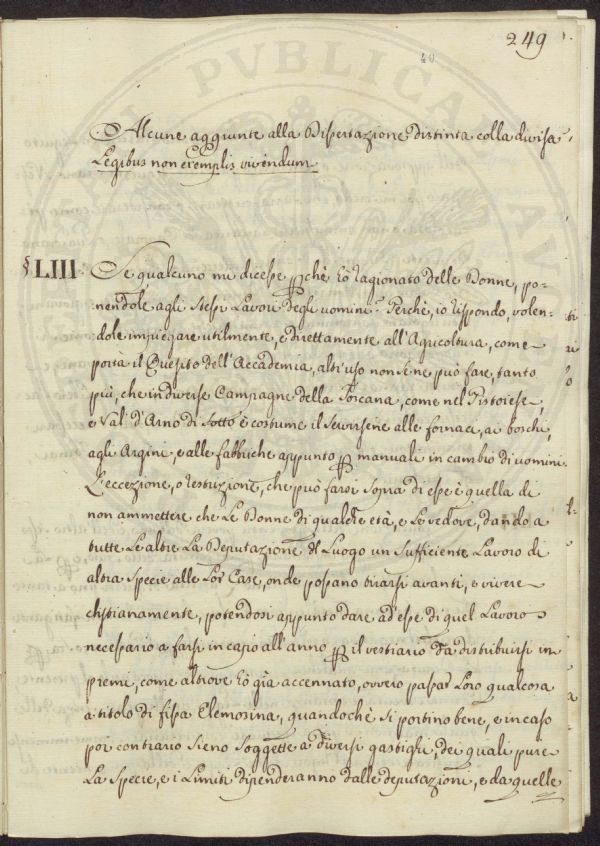 249
40
Alcune aggiunte alla Dissertazione distinta colla divisa
Legibus non exemplis vivendum.
§ LIII. Se qualcuno mi dicesse pchè hò ragionato delle Donne, po-
nendole agli stessi Lavori degli uomini? Perchè, io rispondo, volen-
dole impiegare utilmente, e direttamente all'Agricoltura, come
porta il Quesito dell'Accademia, altr'uso non se ne può fare, tanto
più, che in diverse Campagne della Toscana, come nel Pistoiese,
e Val d'Arno di Sotto è costume il servirsene alle fornaci, ai boschi,
agli Argini, e alle fabbriche appunto p manuali in cambio di uomini.
L'eccezione, o restrizione, che può farsi sopra di esse è quella di
non ammettere che Le Donne di qualche età, e Le vedove, dando a
tutte Le altre La Deputazione del Luogo un sufficiente Lavoro di
altra Specie alle Lor Case, onde possano tirarsi avanti, e vivere
cristianamente, potendosi appunto dare ad esse di quel Lavoro
necessario a farsi in capo all'anno p il vestiario da distribuirsi in
premi, come altrove hò già accennato, ovvero passar Loro qualcosa
a titolo di fissa Elemosina, quandochè si portino bene, e in caso
poi contrario sieno soggette a diversi gastighi, dei quali pure
La Specie, e i Limiti dipenderanno dalle deputazioni, e da quelle